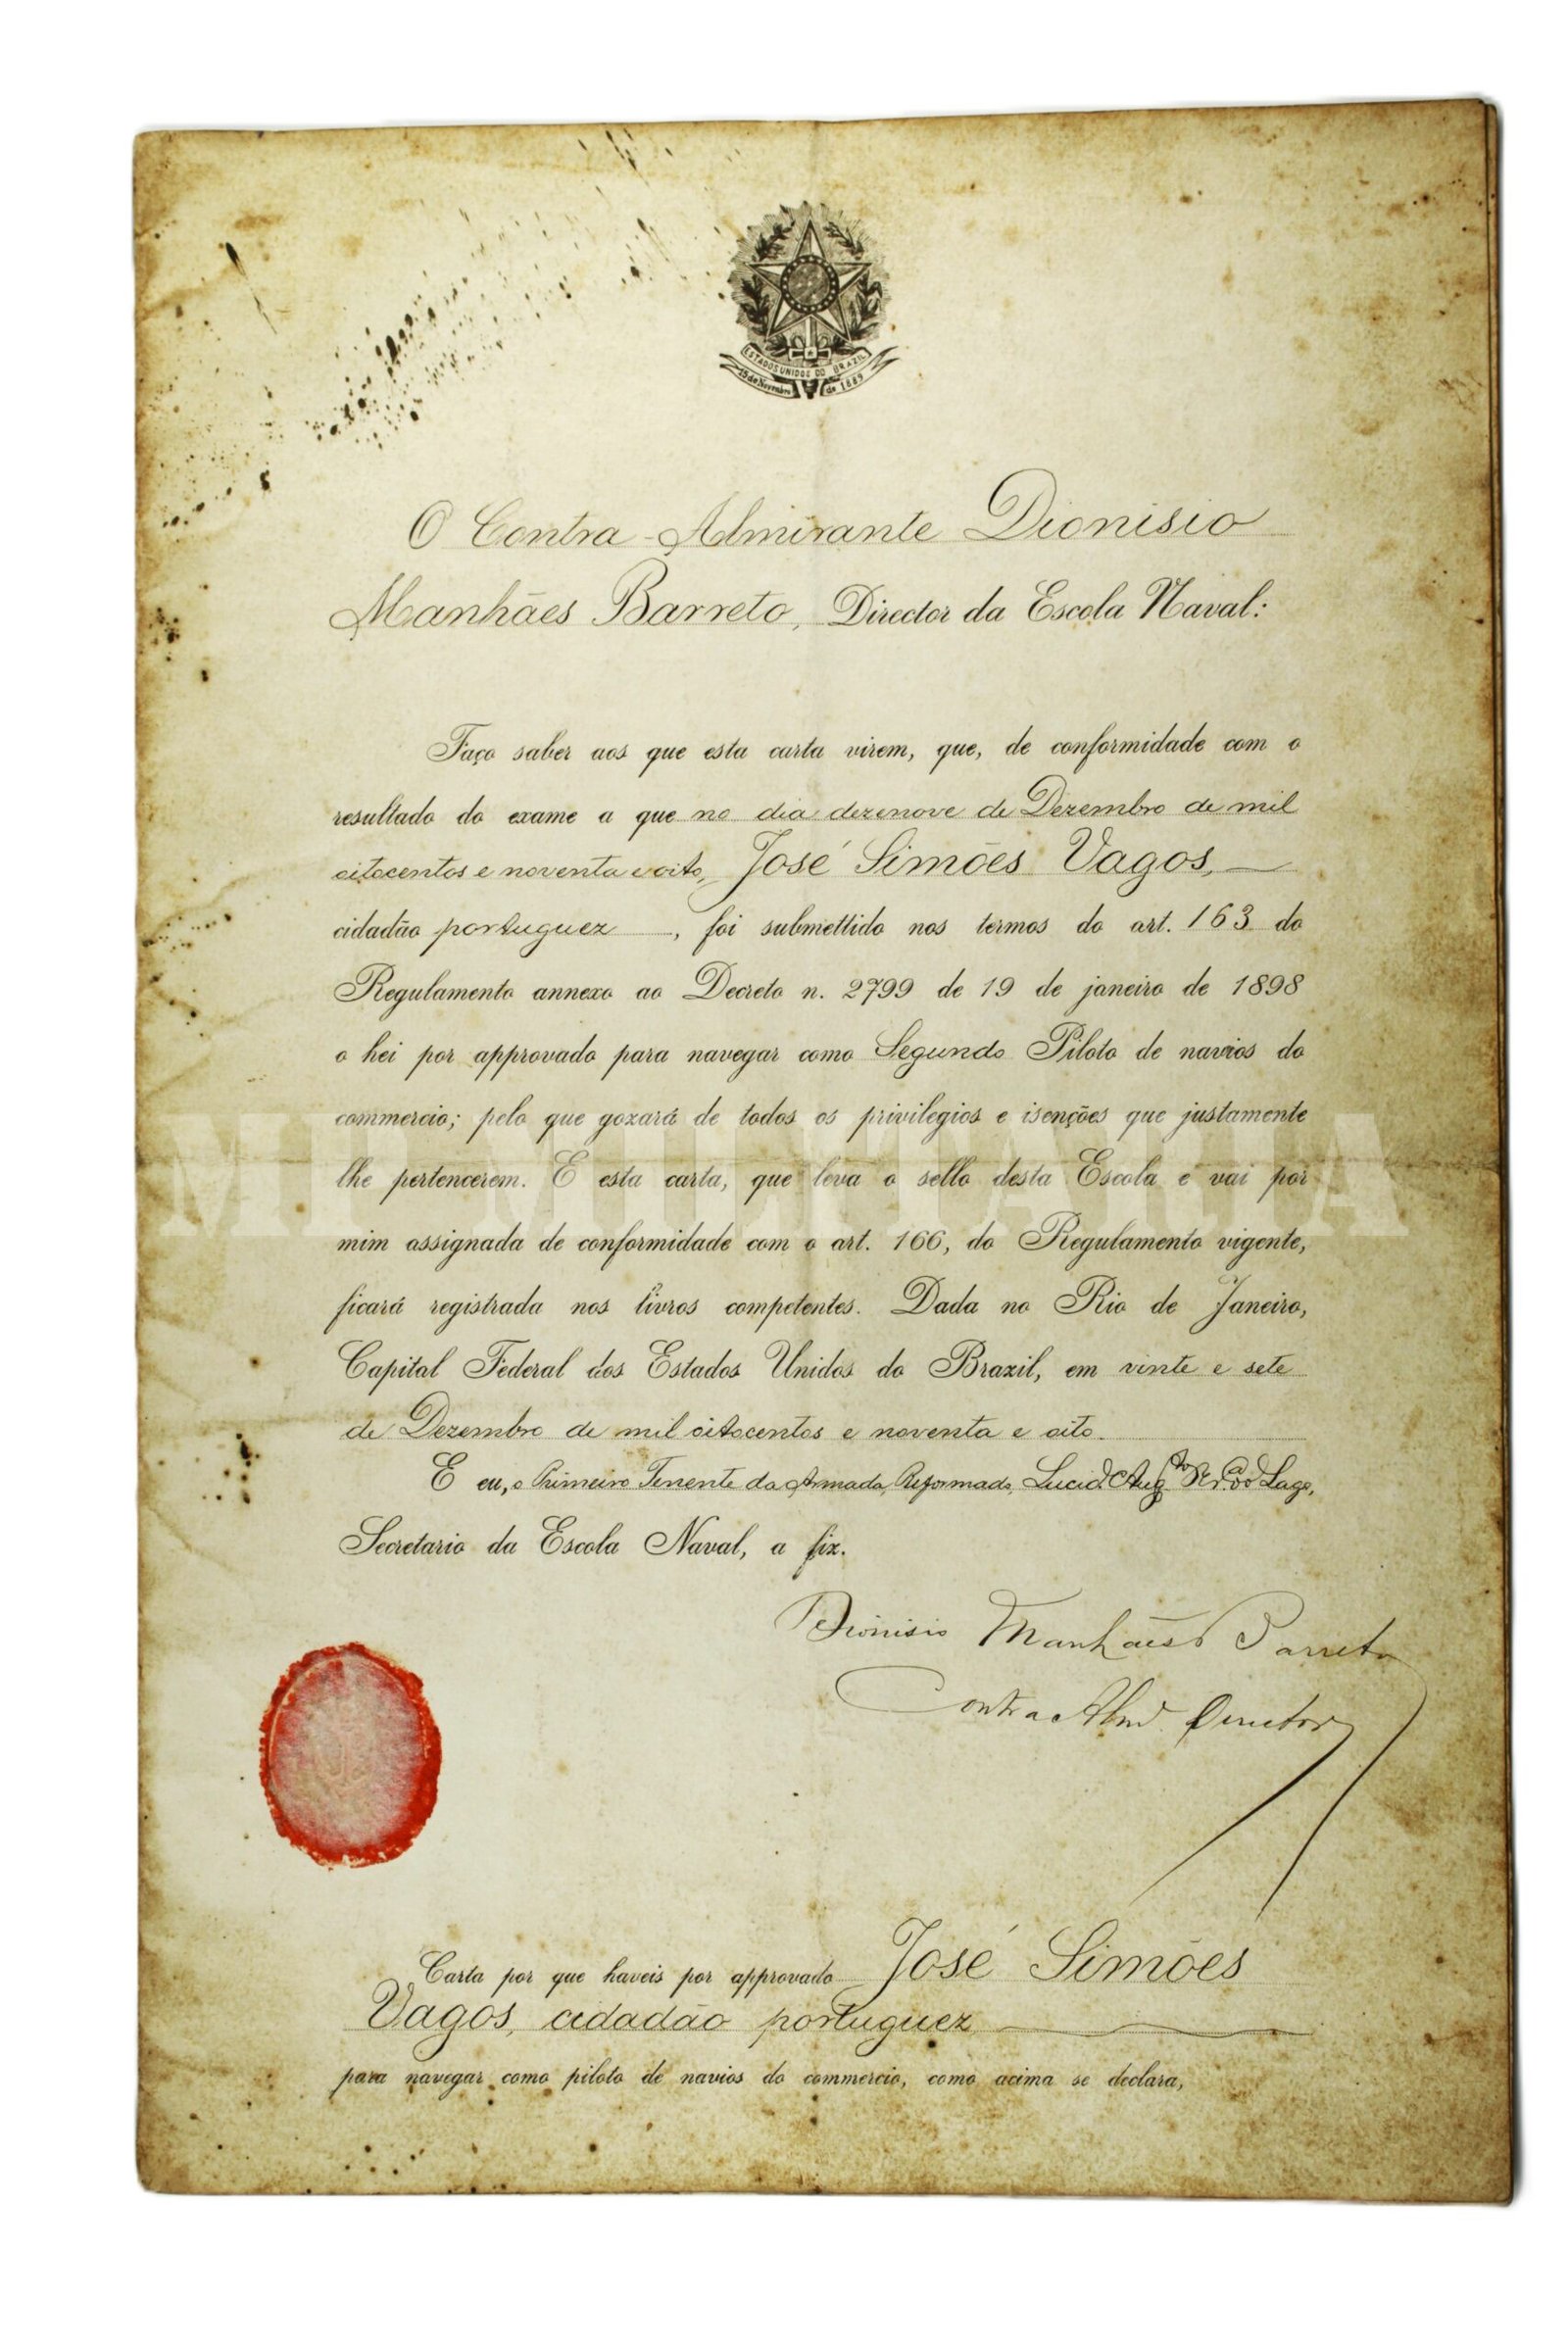 ESTADOS UNIDOS DO BRAZIL
15 de Novembro de 1889
O Contra-Almirante Dionisio
Manhães Barreto, Director da Escola Naval:
Faço saber aos que esta carta virem, que, de conformidade com o
resultado do exame a que no dia dezenove de Dezembro de mil
oitocentos e noventa e oito, José Simões Vagos,
cidadão portuguez, foi submettido nos termos do art. 163 do
Regulamento annexo ao Decreto n. 2799 de 19 de janeiro de 1898
o hei por approvado para navegar como Segundo Piloto de navios do
commercio; pelo que gozará de todos os privilegios e isenções que justamente
lhe pertencerem. E esta carta, que leva o sello desta Escola e vai por
mim assignada de conformidade com o art. 166, do Regulamento vigente,
ficará registrada nos livros competentes. Dada no Rio de Janeiro,
Capital Federal dos Estados Unidos do Brazil, em vinte e sete
de Dezembro de mil oitocentos e noventa e oito.
E eu, o Primeiro Tenente da Armada, Reformado, Lucid. Aug.to Lago,
Secretario da Escola Naval, a fiz.
Dionisio Manhães Barreto
Contra Almd. Director
Carta por que haveis por approvado José Simões
Vagos, cidadão portuguez
para navegar como piloto de navios do commercio, como acima se declara,